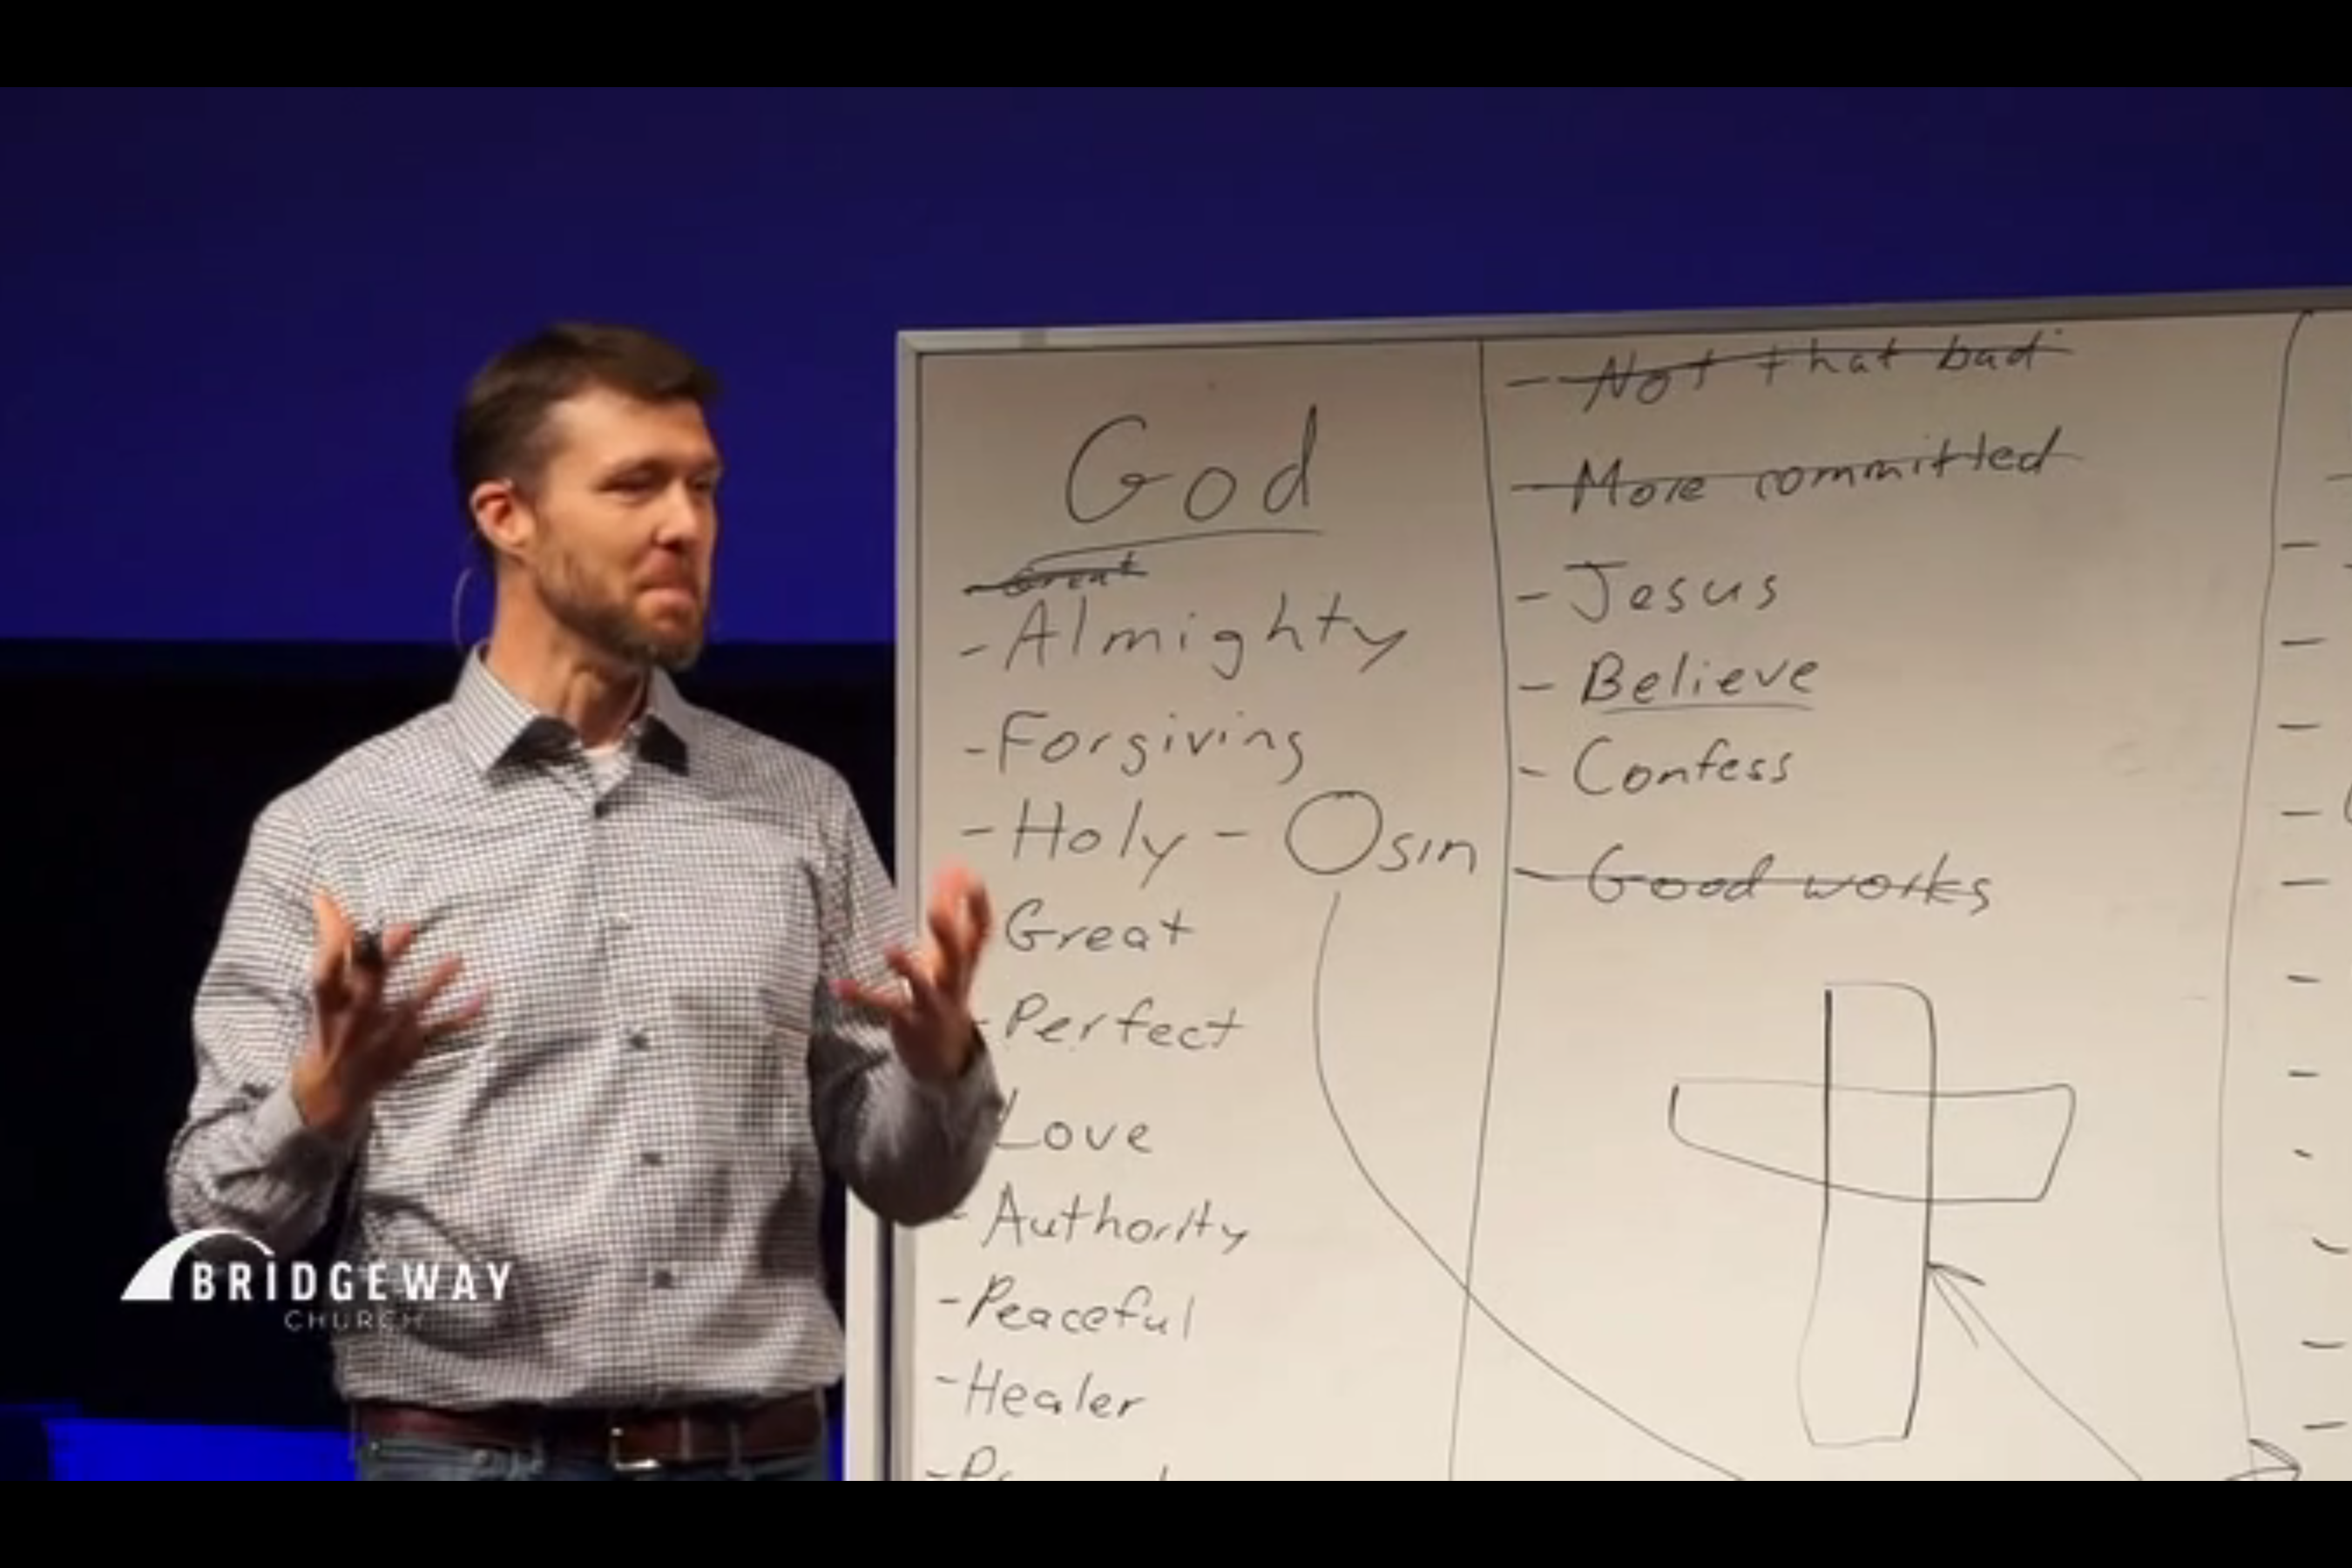 God
- Great
- Almighty
- Forgiving
- Holy - O sin
Great
- Perfect
Love
- Authority
- Peaceful
- Healer
- Not that bad
- More committed
- Jesus
- Believe
- Confess
- Good works
BRIDGEWAY
CHURCH